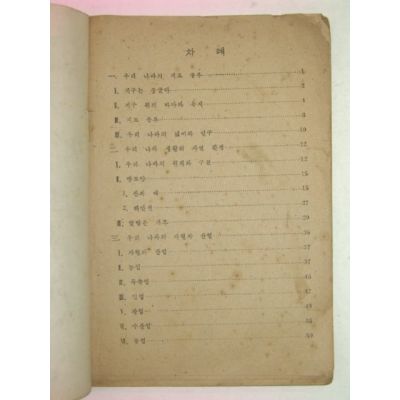 차 례
一. 우리 나라의 지도 공부 1
Ⅰ. 지구는 둥글다 2
Ⅱ. 지구 위의 바다와 육지 4
Ⅲ. 지도 공부 8
Ⅳ. 우리 나라의 넓이와 인구 10
二. 우리 나라 생활의 자연 환경 12
Ⅰ. 우리 나라의 위치와 구분 12
Ⅱ. 땅모양 15
1. 산과 내 15
2. 해안선 27
Ⅲ. 알맞은 기후 29
三. 우리 나라의 자원과 산업 36
Ⅰ. 자원과 산업 37
Ⅱ. 농업 37
Ⅲ. 목축업 45
Ⅳ. 임업 47
Ⅴ. 광업 49
Ⅵ. 수산업 55
Ⅶ. 공업